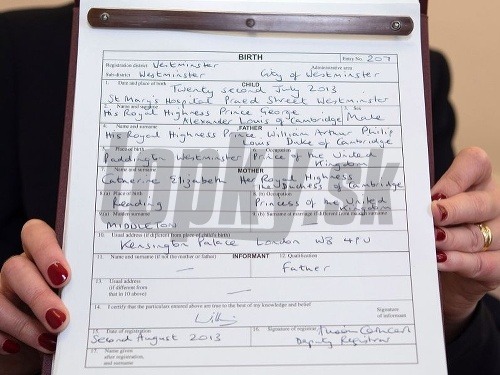 BIRTH
Entry No. 207
Registration district Westminster
Administrative area
Sub-district Westminster
City of Westminster
1. Date and place of birth
CHILD
Twenty second July 2013
St Mary's Hospital Praed Street Westminster
2. Name and surname
3. Sex
His Royal Highness Prince George
Alexander Louis of Cambridge
Male
4. Name and surname
FATHER
His Royal Highness Prince William Arthur Philip
Louis Duke of Cambridge
5. Place of birth
6. Occupation
Paddington Westminster
Prince of the United
Kingdom
7. Name and surname
MOTHER
Catherine Elizabeth Her Royal Highness
The Duchess of Cambridge
8.(a) Place of birth
8.(b) Occupation
Reading
Princess of the United
Kingdom
9.(a) Maiden surname
9.(b) Surname at marriage if different from maiden surname
MIDDLETON
10. Usual address (if different from place of child's birth)
Kensington Palace London W8 4PU
11. Name and surname (if not the mother or father)
INFORMANT
12. Qualification
Father
13. Usual address
(if different from
that in 10 above)
14. I certify that the particulars entered above are true to the best of my knowledge and belief
Signature
of informant
15. Date of registration
16. Signature of registrar
Second August 2013
Deputy Registrar
17. Name given
after registration,
and surname
topky.sk